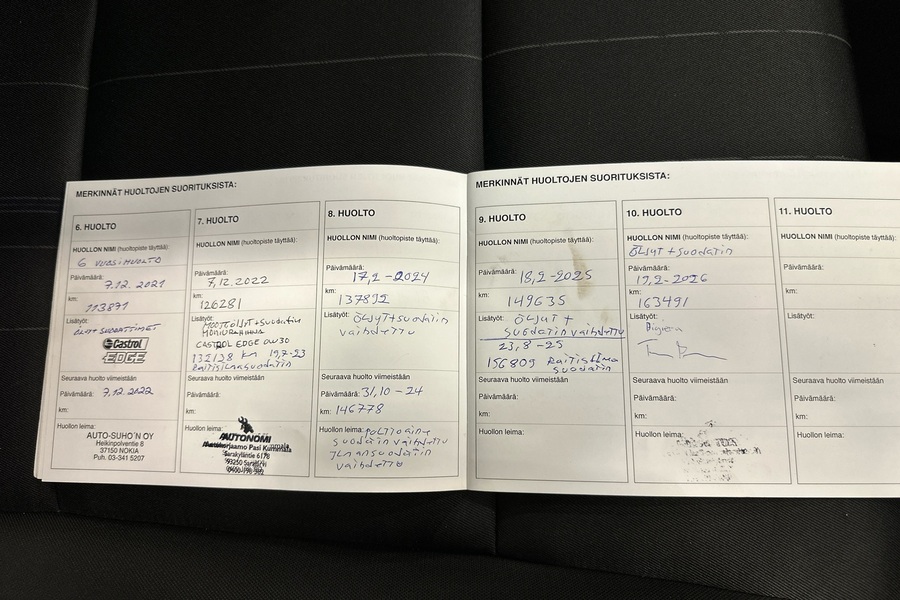 MERKINNÄT HUOLTOJEN SUORITUKSISTA:
6. HUOLTO
HUOLLON NIMI (huoltopiste täyttää):
6 VUOSIHUOLTO
Päivämäärä:
7.12.2021
km:
113871
Lisätyöt:
ÖLJYT SUODATTIMET
Castrol
EDGE
Seuraava huolto viimeistään
Päivämäärä: 7.12.2022
km:
Huollon leima:
AUTO-SUHO'N OY
Heikinpolventie 8
37150 NOKIA
Puh. 03-341 5207
7. HUOLTO
HUOLLON NIMI (huoltopiste täyttää):
Päivämäärä:
7,12.2022
km:
126281
Lisätyöt:
MOOTTOLJYT+suodatin
CASTROL EDGE 0W30
132128 km 19,7-23
Raitisilmasuodatin
Seuraava huolto viimeistään
Päivämäärä:
km:
Huollon leima:
AUTONOMI
Pasi Kummala
Sarakyläntie 6178
93250
8. HUOLTO
HUOLLON NIMI (huoltopiste täyttää):
Päivämäärä:
17,2-2024
km:
137892
Lisätyöt: Öljyt+suodatin
vaihdettu
Seuraava huolto viimeistään
Päivämäärä: 31,10-24
km: 146778
Huollon leima: polttoaine
suodatin vaihdettu
ilmansuodatin
vaihdettu
MERKINNÄT HUOLTOJEN SUORITUKSISTA:
9. HUOLTO
HUOLLON NIMI (huoltopiste täyttää):
Päivämäärä: 18,2-2025
km:
149635
Lisätyöt: Öljyt +
suodatin vaihdettu
23,8-25
156809 Raitisilma
suodatin
Seuraava huolto viimeistään
Päivämäärä:
km:
Huollon leima:
10. HUOLTO
HUOLLON NIMI (huoltopiste täyttää):
Öljyt + suodatin
Päivämäärä:
17,2-2026
km:
163491
Lisätyöt:
Seuraava huolto viimeistään
Päivämäärä:
km:
Huollon leima:
11. HUOLTO
HUOLLON NIMI (huoltopiste täyttää):
Päivämäärä:
km:
Lisätyöt:
Seuraava huolto viimeistään
Päivämäärä:
km:
Huollon leima: